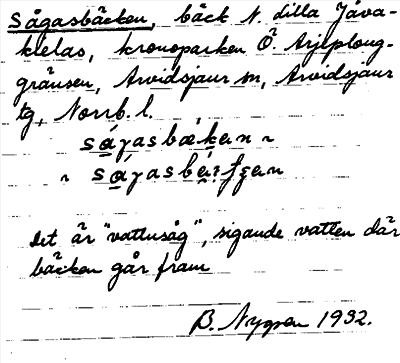 Sågasbäcken, bäck N. dilla Jåva-
klelas, kronoparken Ö. Arjeploug-
gränsen, Arvidsjaur sn, Arvidsjaur
tg, Norrb. l.
Det är "vattusåg", sigande vatten där
bäcken går fram
B. Nygren 1932.